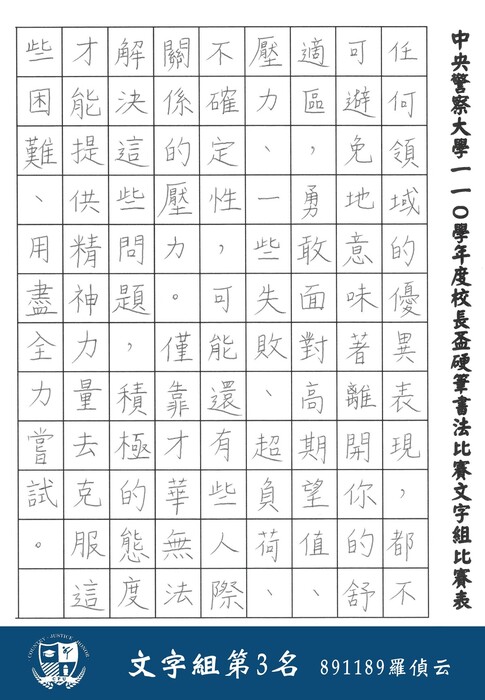 中央警察大學一一〇學年度校長盃硬筆書法比賽文字組比賽表
任何領域的優異表現，都不
可避免地意味著離開你的舒
適區，勇敢面對高期望值、
壓力、一些失敗、超負荷、
不確定性，可能還有些人際
關係的壓力。僅靠才華無法
解決這些問題，積極的態度
才能提供精神力量去克服這
些困難、用盡全力嘗試。
文字組第3名 891189羅偵云